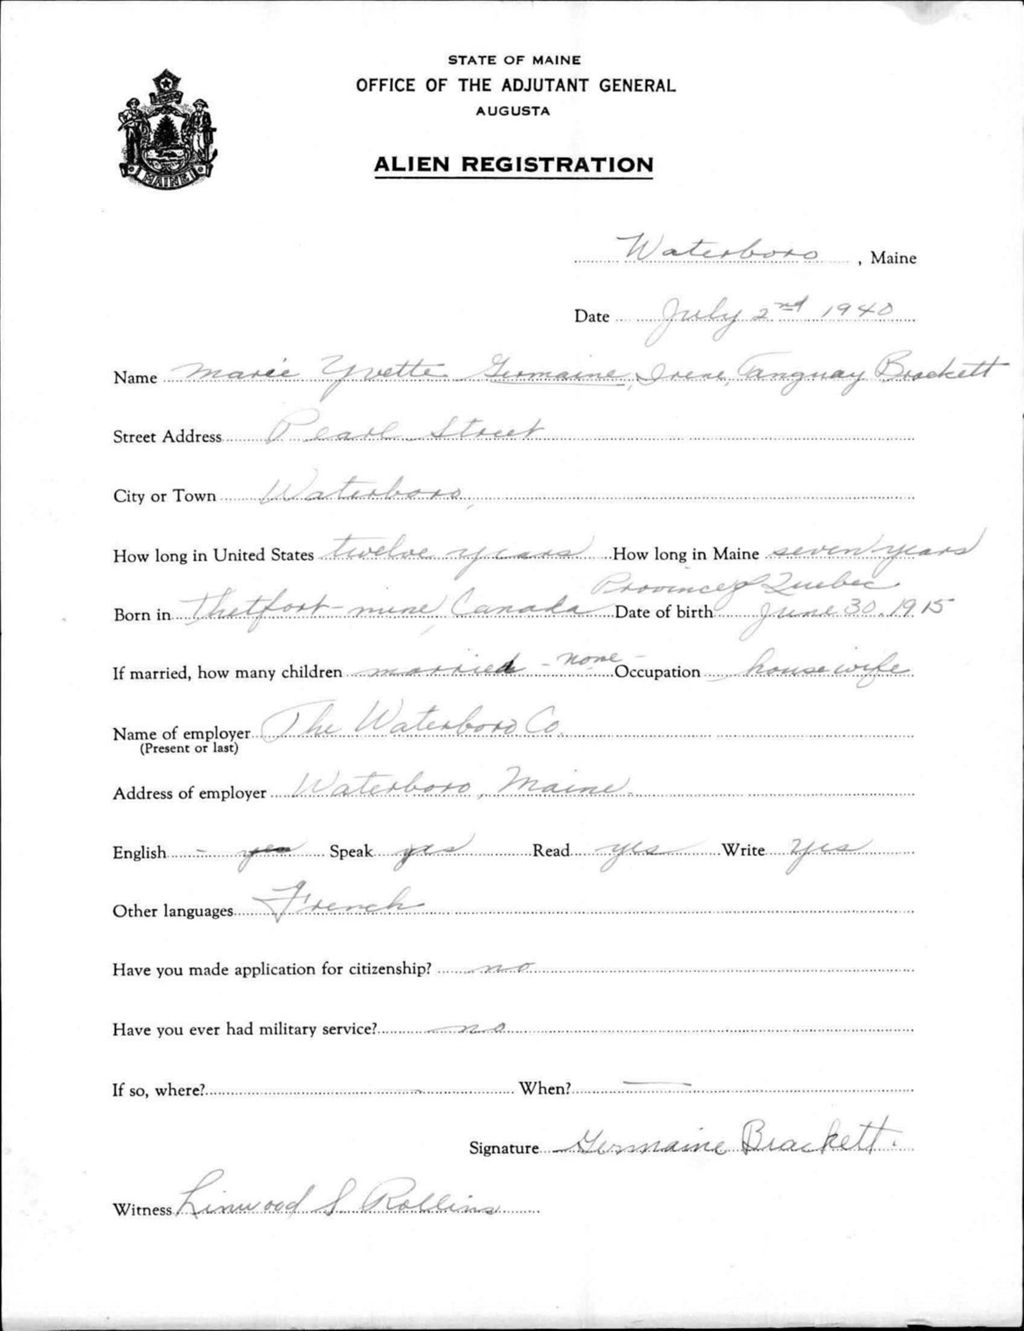 STATE OF MAINE
OFFICE OF THE ADJUTANT GENERAL
AUGUSTA
ALIEN REGISTRATION
MAINE
Waterboro, Maine
Date July 2nd 1940
Name Marie Yvette Germaine, Irene, Tanguay Brackett
Street Address Pearl Street
City or Town Waterboro,
How long in United States twelve years How long in Maine seven years
Province of Quebec
Born in Thetfort-mine, Canada Date of birth June 30, 1915
If married, how many children married - none - Occupation housewife
Name of employer The Waterboro Co.
(Present or last)
Address of employer Waterboro, Maine.
English - yes Speak yes Read yes Write Yes
Other languages French
Have you made application for citizenship? no
Have you ever had military service? no
If so, where? When? —
Signature Germaine Brackett.
Witness Linwood S Rollins